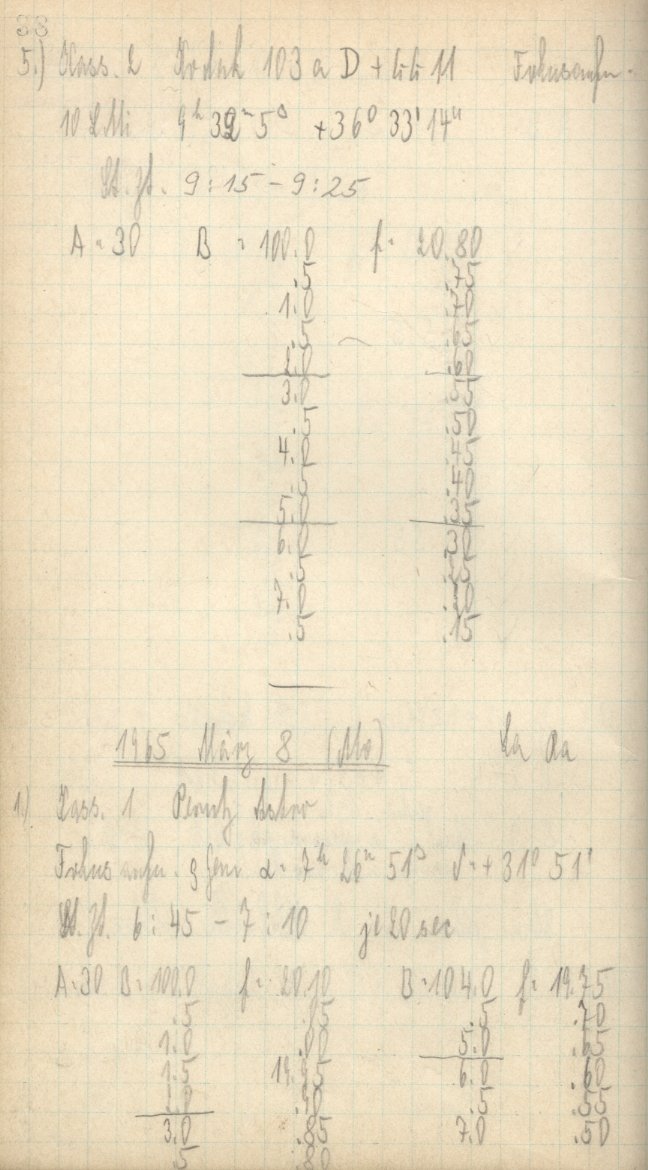 88
5.) Kass. 2 Kodak 103 a D + 11 Fokusaufn.
10 L Mi 9h 32m 5s +36° 33' 14"
St. Zt. 9:15 - 9:25
A = 30 B = 100.0 f = 20.80
.5 .75
1.0 .70
.5 .65
2.0 .60
3.0 .55
.5 .50
4.0 .45
.5 .40
5.0 .35
6.0 .30
.5 .25
7.0 .20
.5 .15
1965 März 8 (Mo) La Aa
1.) Kass. 1 Perutz Astro
Fokusaufn. ρ Gem α = 7h 26m 51s δ = +31° 51'
St. Zt. 6:45 - 7:10 je 20 sec
A = 30 B = 100.0 f = 20.10 B = 104.0 f = 19.75
.5 .05 .5 .70
1.0 .00 5.0 .65
1.5 19.95 6.0 .60
2.0 .90 .5 .55
3.0 .85 7.0 .50
.5 .80